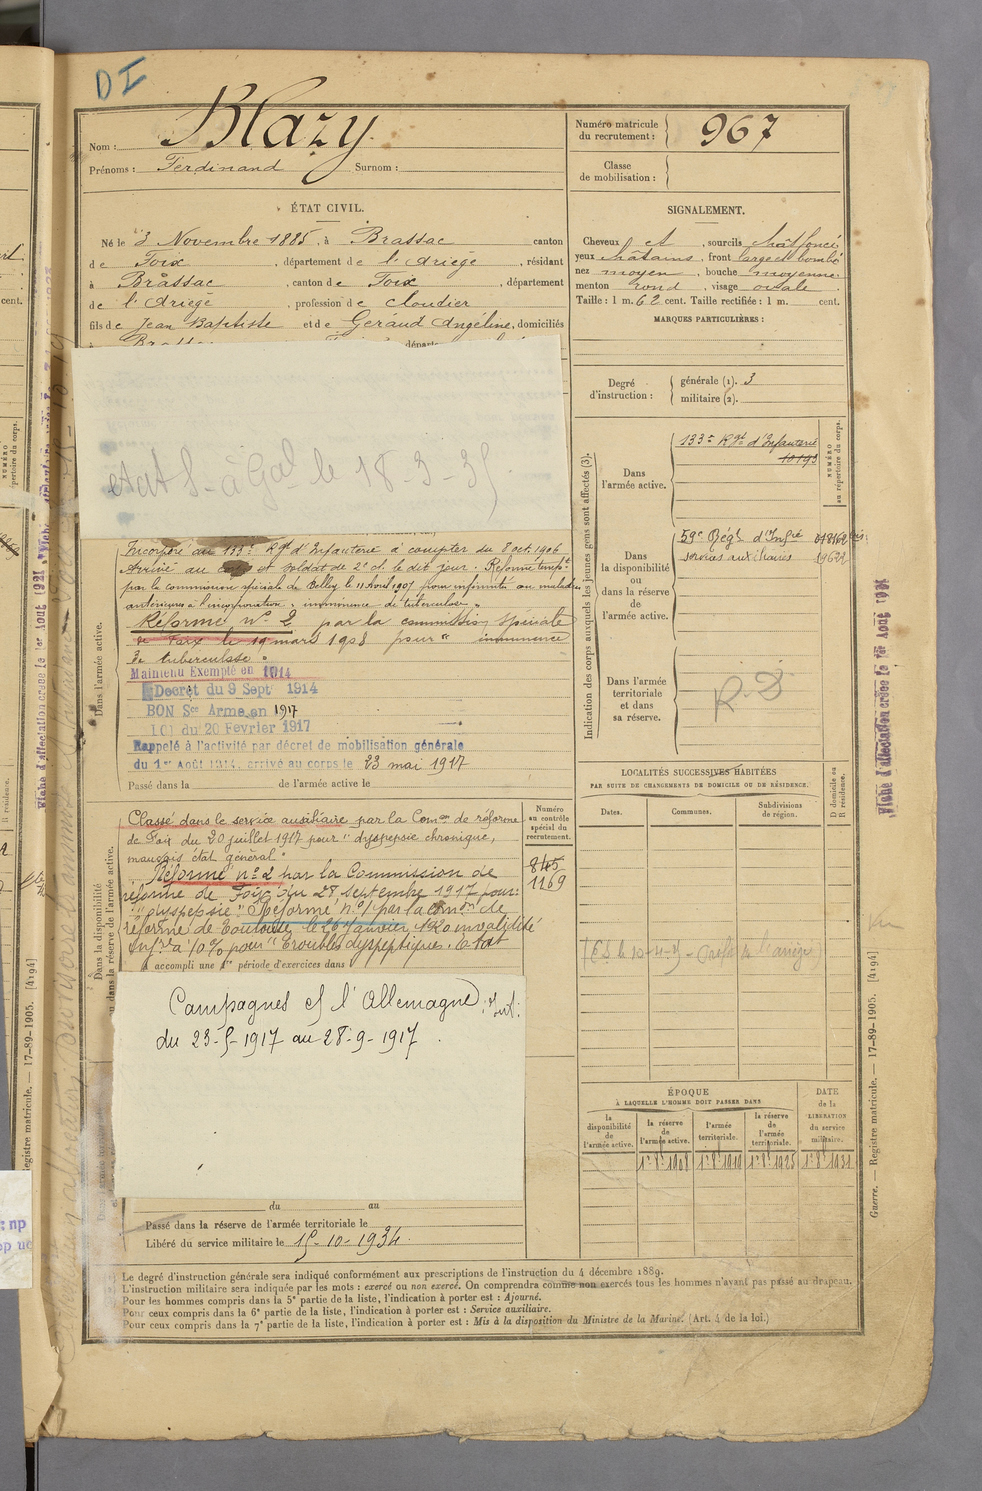 DI
Nom : Blazy
Prénoms : Ferdinand Surnom :
Numéro matricule
du recrutement : 967
Classe
de mobilisation :
ÉTAT CIVIL.
Né le 3 Novembre 1885, à Brassac canton
de Foix, département de l'Ariège, résidant
à Brassac, canton de Foix, département
de l'Ariège, profession de cloutier
fils de Jean Baptiste et de Géraud Angéline, domiciliés
à Brassac
SIGNALEMENT.
Cheveux et, sourcils chât foncé
yeux châtains, front large et bombé
nez moyen, bouche moyenne
menton rond, visage ovale
Taille : 1 m. 62 cent. Taille rectifiée : 1 m. cent.
MARQUES PARTICULIÈRES :
Degré
d'instruction :
générale (1). 3
militaire (2).
état S- à Gal le 18-3-35
Incorporé au 133e Rgt d'Infanterie à compter du 8 oct. 1906
Arrivé au corps et soldat de 2e cl. le dit jour. Réformé tempt
par la commission spéciale de Belley le 11 Aout 1907 pour infirmité ou maladie
antérieure à l'incorporation "imminence de tuberculose"
Réformé no 2 par la commission spéciale
de Foix le 19 mars 1908 pour "imminence
de tuberculose"
Maintenu Exempté en 1914
Décret du 9 Sept 1914
BON Sce Armé en 1917
LOI du 20 Fevrier 1917
Rappelé à l'activité par décret de mobilisation générale
du 1er Août 1914, arrivé au corps le 23 mai 1917
Passé dans la de l'armée active le
Dans l'armée active.
Indication des corps auxquels les jeunes gens sont affectés (3).
Dans
l'armée active.
133e Rgt d'Infanterie
10193
NUMÉRO
au répertoire du corps.
Dans
la disponibilité
ou
dans la réserve
de
l'armée active.
59e Régt d'Infie
services auxiliaires
19622
Dans l'armée
territoriale
et dans
sa réserve.
R.D
Classé dans le service auxiliaire par la Comon de réforme
de Foix du 20 juillet 1917 pour "dyspepsie chronique,
mauvais état général"
Réformé no 2 par la Commission de
réforme de Foix du 28 septembre 1917 pour:
"dyspepsie" Réformé no 1 par la Comon de
réforme de Toulouse, le 26 Janvier 1920 invalidité
Infre à 10% pour "Troubles dyspeptiques. Etat
A accompli une 1re période d'exercices dans
Numéro
au contrôle
spécial du
recrutement.
845
1169
Dans la disponibilité
ou dans la réserve de l'armée active.
Campagnes c/ l'Allemagne
du 23-5-1917 au 28-9-1917
LOCALITÉS SUCCESSIVES HABITÉES
PAR SUITE DE CHANGEMENTS DE DOMICILE OU DE RÉSIDENCE.
Dates.
Communes.
Subdivisions
de région.
D domicile ou
R résidence.
ÉPOQUE
À LAQUELLE L'HOMME DOIT PASSER DANS
la
disponibilité
de
l'armée active.
la réserve
de
l'armée active.
l'armée
territoriale.
la réserve
de
l'armée
territoriale.
DATE
de la
LIBÉRATION
du service
militaire.
du au
Passé dans la réserve de l'armée territoriale le
Libéré du service militaire le 15-10-1934.
Le degré d'instruction générale sera indiqué conformément aux prescriptions de l'instruction du 4 décembre 1889.
L'instruction militaire sera indiquée par les mots : exercé ou non exercé. On comprendra comme non exercés tous les hommes n'ayant pas passé au drapeau.
Pour les hommes compris dans la 5e partie de la liste, l'indication à porter est : Ajourné.
Pour ceux compris dans la 6e partie de la liste, l'indication à porter est : Service auxiliaire.
Pour ceux compris dans la 7e partie de la liste, l'indication à porter est : Mis à la disposition du Ministre de la Marine. (Art. 4 de la loi.)
Fiche d'affectation créée le 1er Août 1921
Guerre. — Registre matricule. — 17-89-1905. [4194]